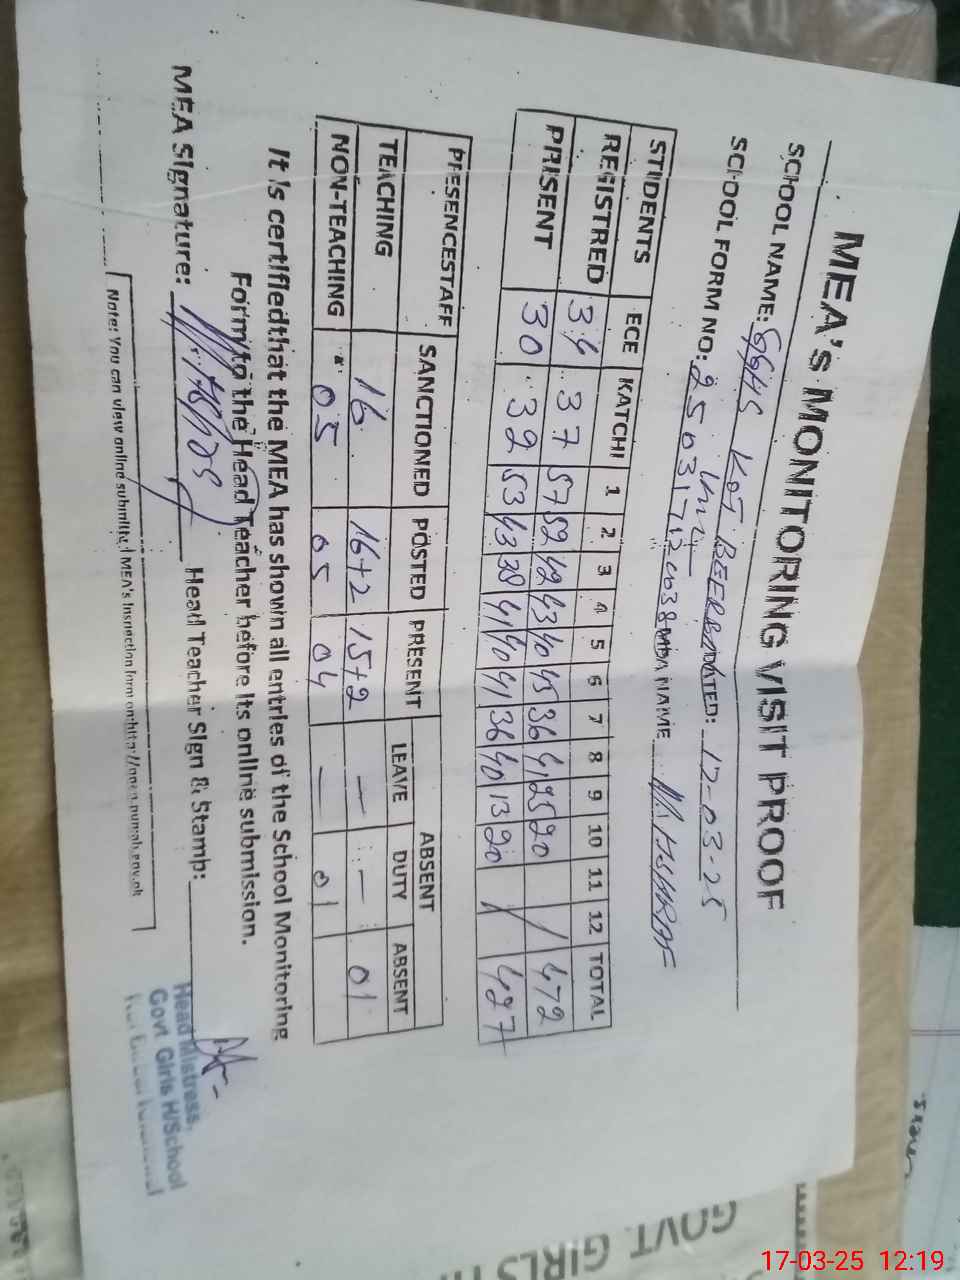 MEA's MONITORING VISIT PROOF
SCHOOL NAME: GGHS KOT BEERBAL
SCHOOL FORM NO: 2503171 DATED: 17-03-25
MEA NAME M. ASHRAF
STUDENTS ECE KATCHI 1 2 3 4 5 6 7 8 9 10 11 12 TOTAL
REGISTRED 34 37 57 52 42 43 40 45 36 41 25 20 / 472
PRISENT 30 32 53 43 38 41 40 41 36 40 13 20 / 427
PRESENCESTAFF SANCTIONED POSTED PRESENT ABSENT
LEAVE DUTY ABSENT
TEACHING 16 16+2 15+2 — — 01
NON-TEACHING 05 05 04 — 01
It is certifiedthat the MEA has shown all entries of the School Monitoring
Form to the Head Teacher before its online submission.
MEA Signature: Head Teacher Sign & Stamp:
Head Mistress,
Govt Girls H/School
Note: You can view online submitted MEA's Inspection form on
GOVT. GIRLS H
17-03-25 12:19